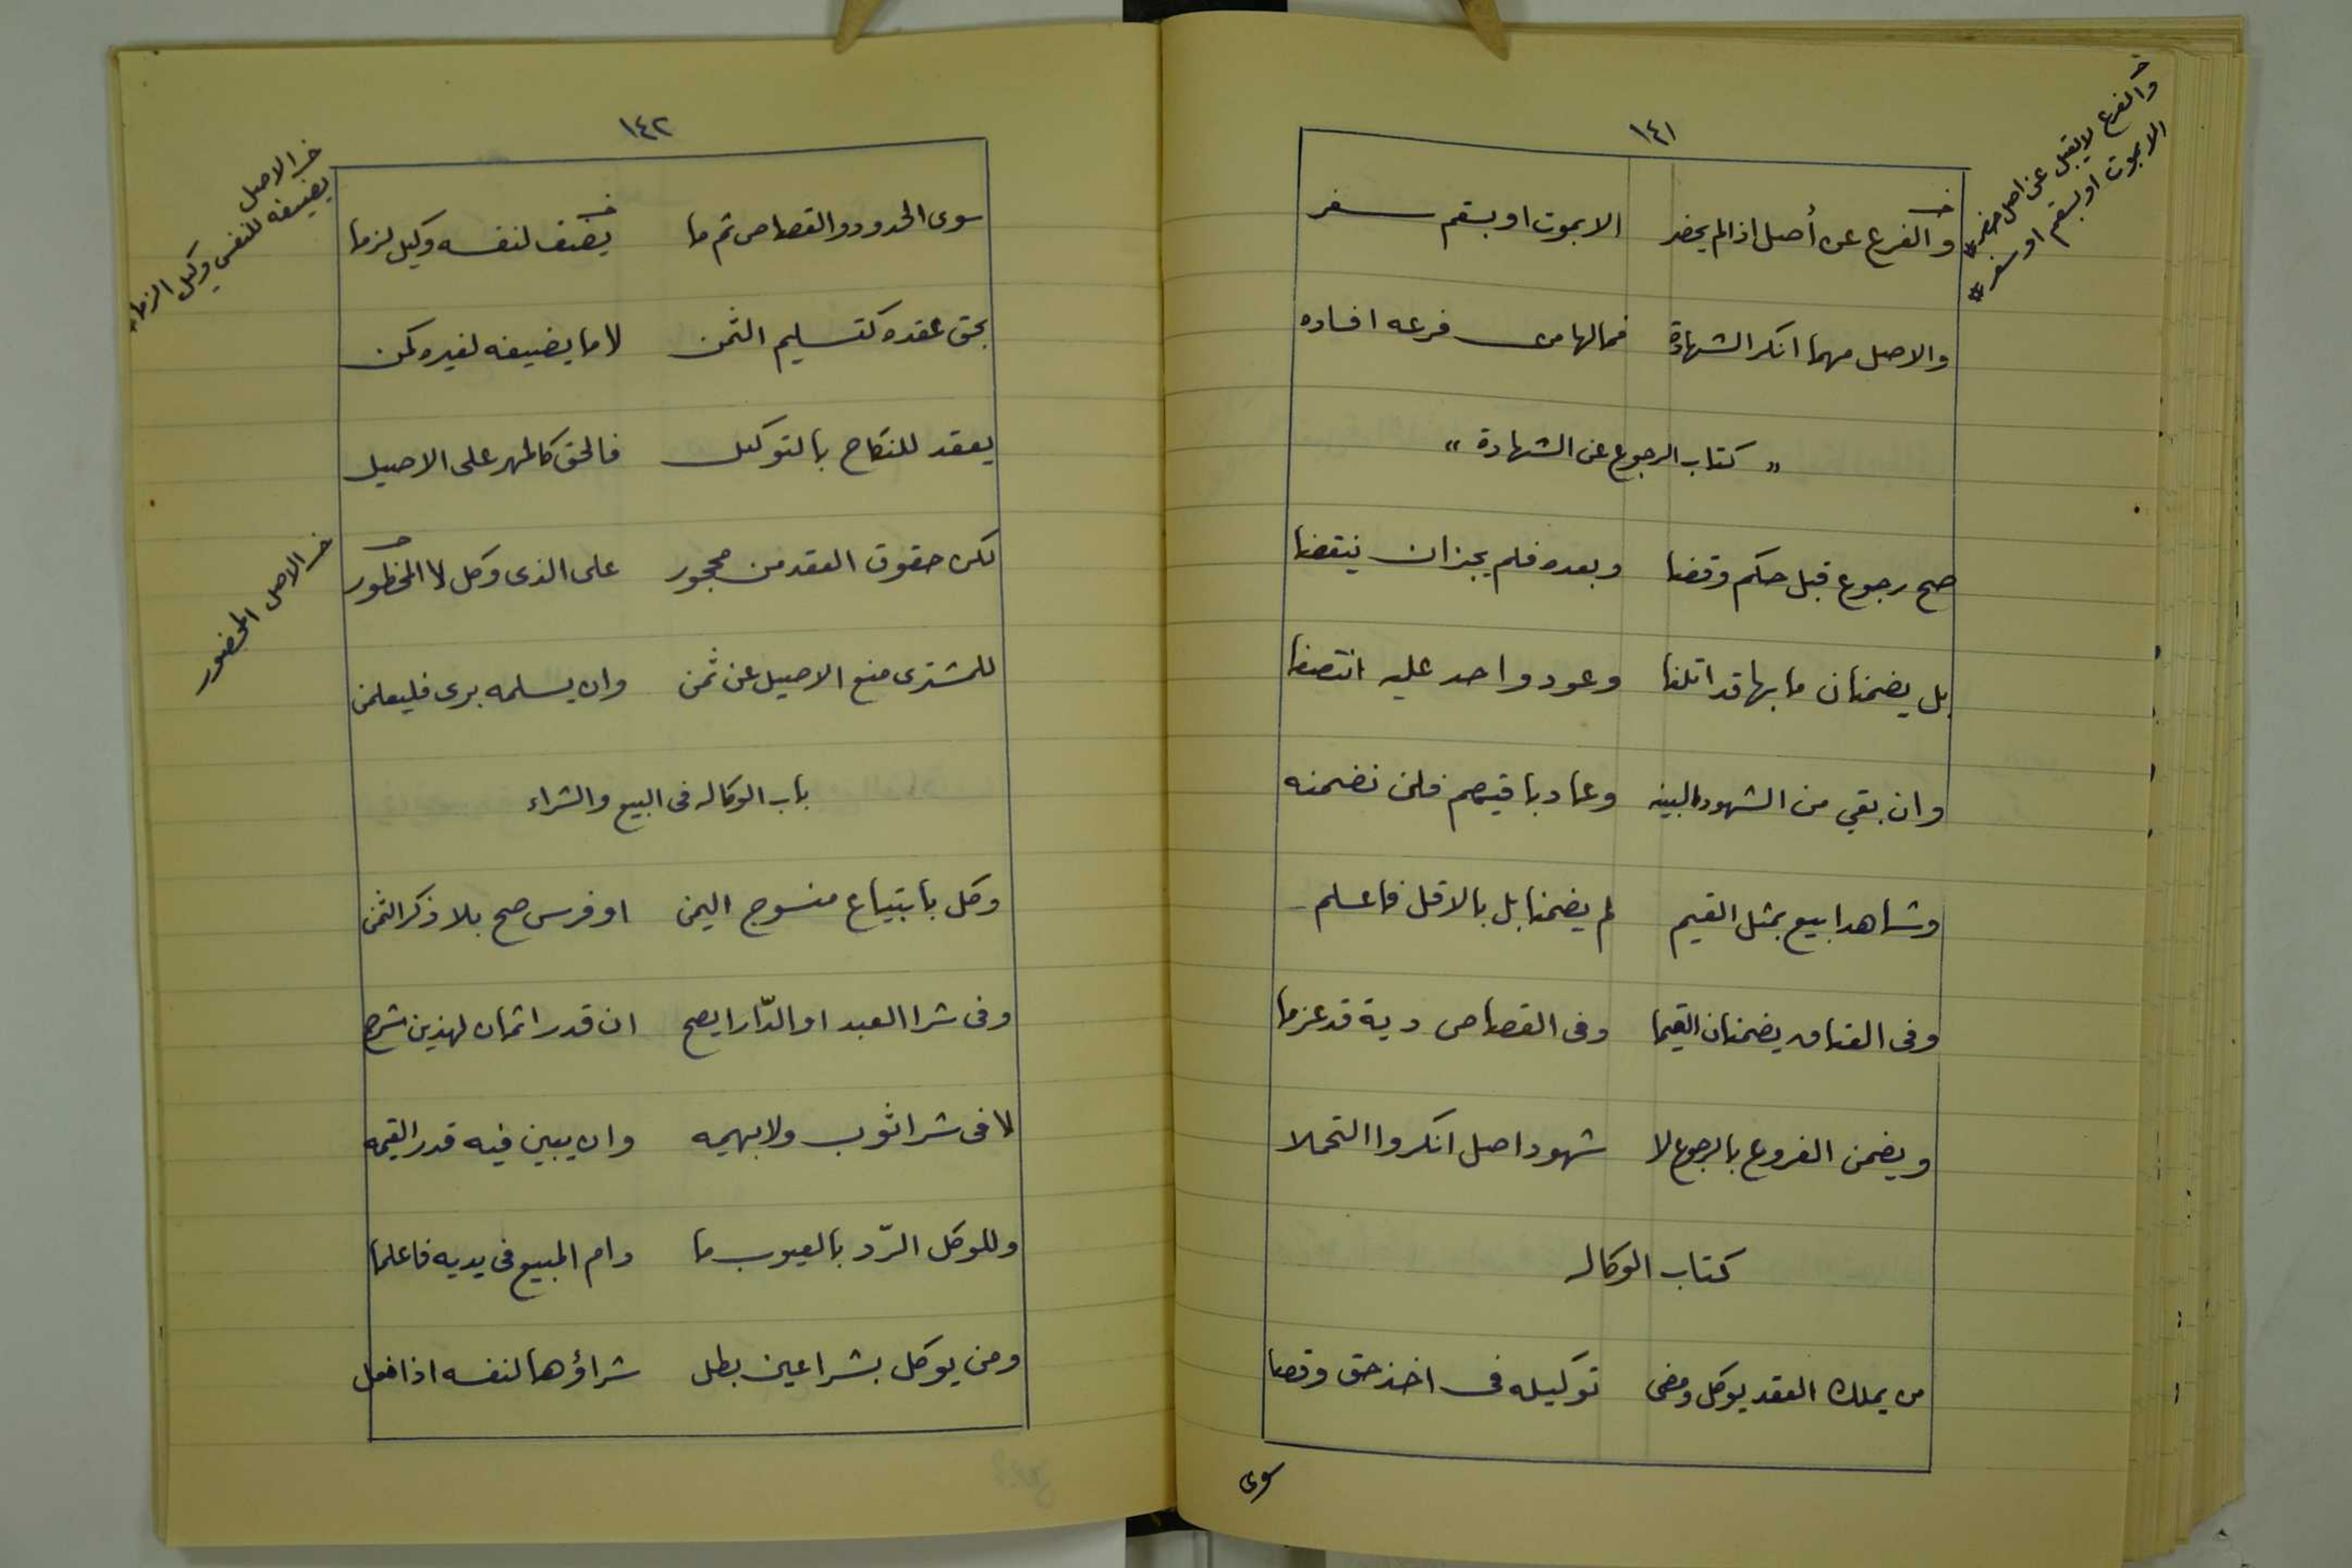 ١٤١
خ
والفرع لا يقبل عن اصل حضر *
الا بموت او بسقم او سفر *
والفرع عن أصل اذا لم يحضر الا بموت او بسقم سفر
والاصل مهما انكر الشهادة فمالها من فرعه افساده
" كتاب الرجوع عن الشهادة "
صح رجوع قبل حكم وقضا وبعده فلم يجز ان ينقضا
بل يضمنان ما بها قد اتلفا وعود واحد عليه انتصفا
وان بقي من الشهود البينه وعاد باقيهم فلن نضمنه
وشاهدا بيع بمثل القيم لم يضمنا بل بالاقل فاعلم
وفى العتاق يضمنان القيما وفى القصاص دية قد عزما
ويضمن الفروع بالرجوع لا شهود اصل انكروا التحملا
كتاب الوكاله
من يملك العقد يوكل ومضى توكيله فى اخذ حق وقضا
سوى
١٤٢
سوى الحدود والقصاص ثم ما يضف لنفسه وكيل لزما
خـ الاصل
يضيفه للنفس وكيل الزما *
بحق عقده كتسليم الثمن لا ما يضيفه لغيره كمن
يعقد للنكاح بالتوكيل فالحق كالمهر على الاصيل
لكن حقوق العقد من محجور على الذى وكل لا المحظور
خـ الاصل المحضور
للمشترى منع الاصيل عن ثمن وان يسلمه برى فليعلمن
باب الوكاله فى البيع والشراء
وكل بابتياع منسوج اليمن او فرس صح بلا ذكر الثمن
وفى شرا العبد او الدّار ايصح ان قدر اثمان لهذين شرح
لا فى شرا ثوب ولا بهيمه وان يبين فيه قدر القيمه
وللوكل الرّد بالعيوب ما دام المبيع فى يديه فاعلما
ومن يوكل بشرا عين بطل شراؤها لنفسه اذا فعل